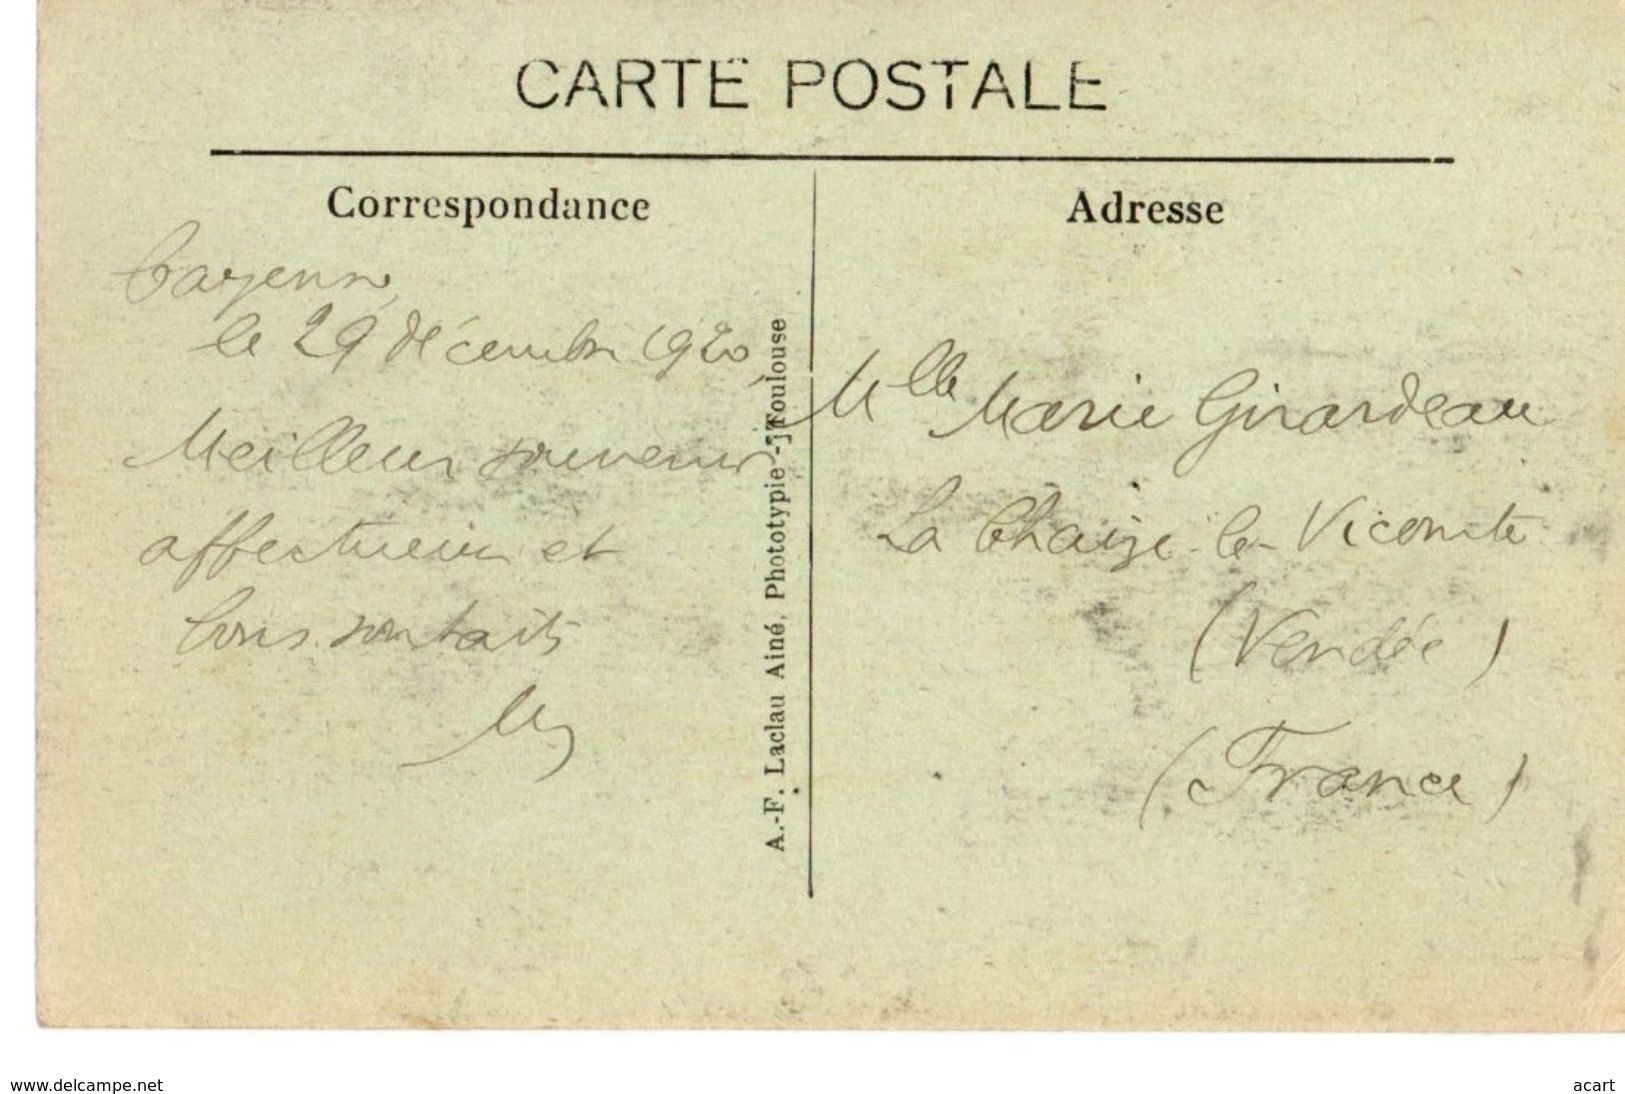 CARTE POSTALE
Correspondance
Adresse
Cayenne,
le 29 décembre 1920,
Meilleur souvenir
affectueux et
bons souhaits
Mlle Marie Girardeau
La Chaize-le-Vicomte
(Vendée)
(France)
A.-F. Laclau Ainé, Phototypie - Toulouse
www.delcampe.net
acart